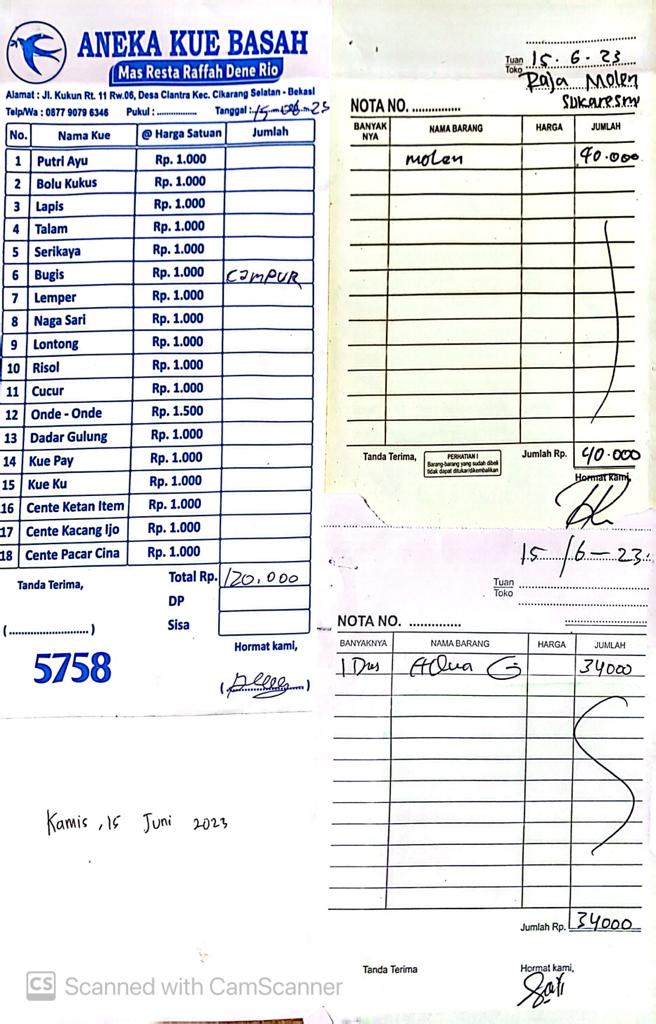 ANEKA KUE BASAH
Mas Resta Raffah Dene Rio
Alamat : Jl. Kukun Rt. 11 Rw.06, Desa Ciantra Kec. Cikarang Selatan - Bekasi
Telp/Wa : 0877 9079 6346 Pukul : ............... Tanggal : 15-06-23
No. Nama Kue @ Harga Satuan Jumlah
1 Putri Ayu Rp. 1.000
2 Bolu Kukus Rp. 1.000
3 Lapis Rp. 1.000
4 Talam Rp. 1.000
5 Serikaya Rp. 1.000
6 Bugis Rp. 1.000 CAMPUR
7 Lemper Rp. 1.000
8 Naga Sari Rp. 1.000
9 Lontong Rp. 1.000
10 Risol Rp. 1.000
11 Cucur Rp. 1.000
12 Onde - Onde Rp. 1.500
13 Dadar Gulung Rp. 1.000
14 Kue Pay Rp. 1.000
15 Kue Ku Rp. 1.000
16 Cente Ketan Item Rp. 1.000
17 Cente Kacang Ijo Rp. 1.000
18 Cente Pacar Cina Rp. 1.000
Tanda Terima, Total Rp. 120.000
DP
Sisa
(........................)
Hormat kami,
5758
Kamis, 15 Juni 2023
15.6.23
Tuan
Toko
Raja Molen
Sukaresmi
NOTA NO. ..............
BANYAK NYA NAMA BARANG HARGA JUMLAH
molen 40.000
Tanda Terima, PERHATIAN ! Jumlah Rp. 40.000
Barang-barang yang sudah dibeli
tidak dapat ditukar/dikembalikan
Hormat kami,
15/6-23
Tuan
Toko
NOTA NO. ..............
BANYAKNYA NAMA BARANG HARGA JUMLAH
1 Dus Aqua G 34000
Jumlah Rp. 34000
Tanda Terima Hormat kami,
Sari
CS Scanned with CamScanner